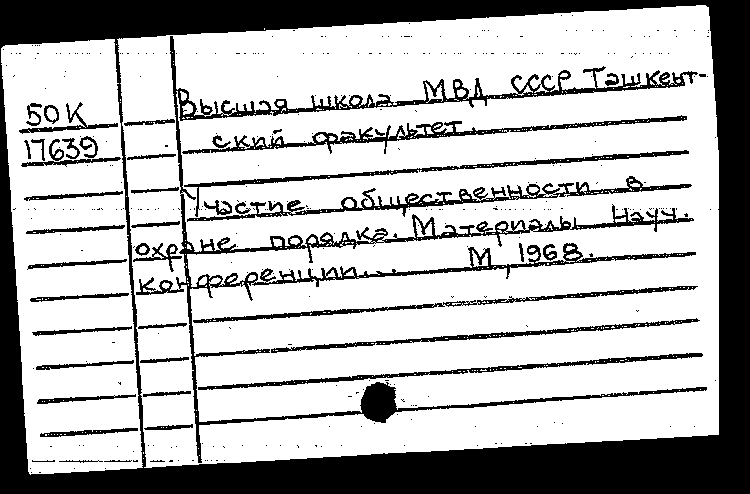 50К
17639
Высшая школа МВД СССР. Ташкент-
ский факультет.
Участие общественности в
охране порядка. Материалы науч.
конференции... М, 1968.